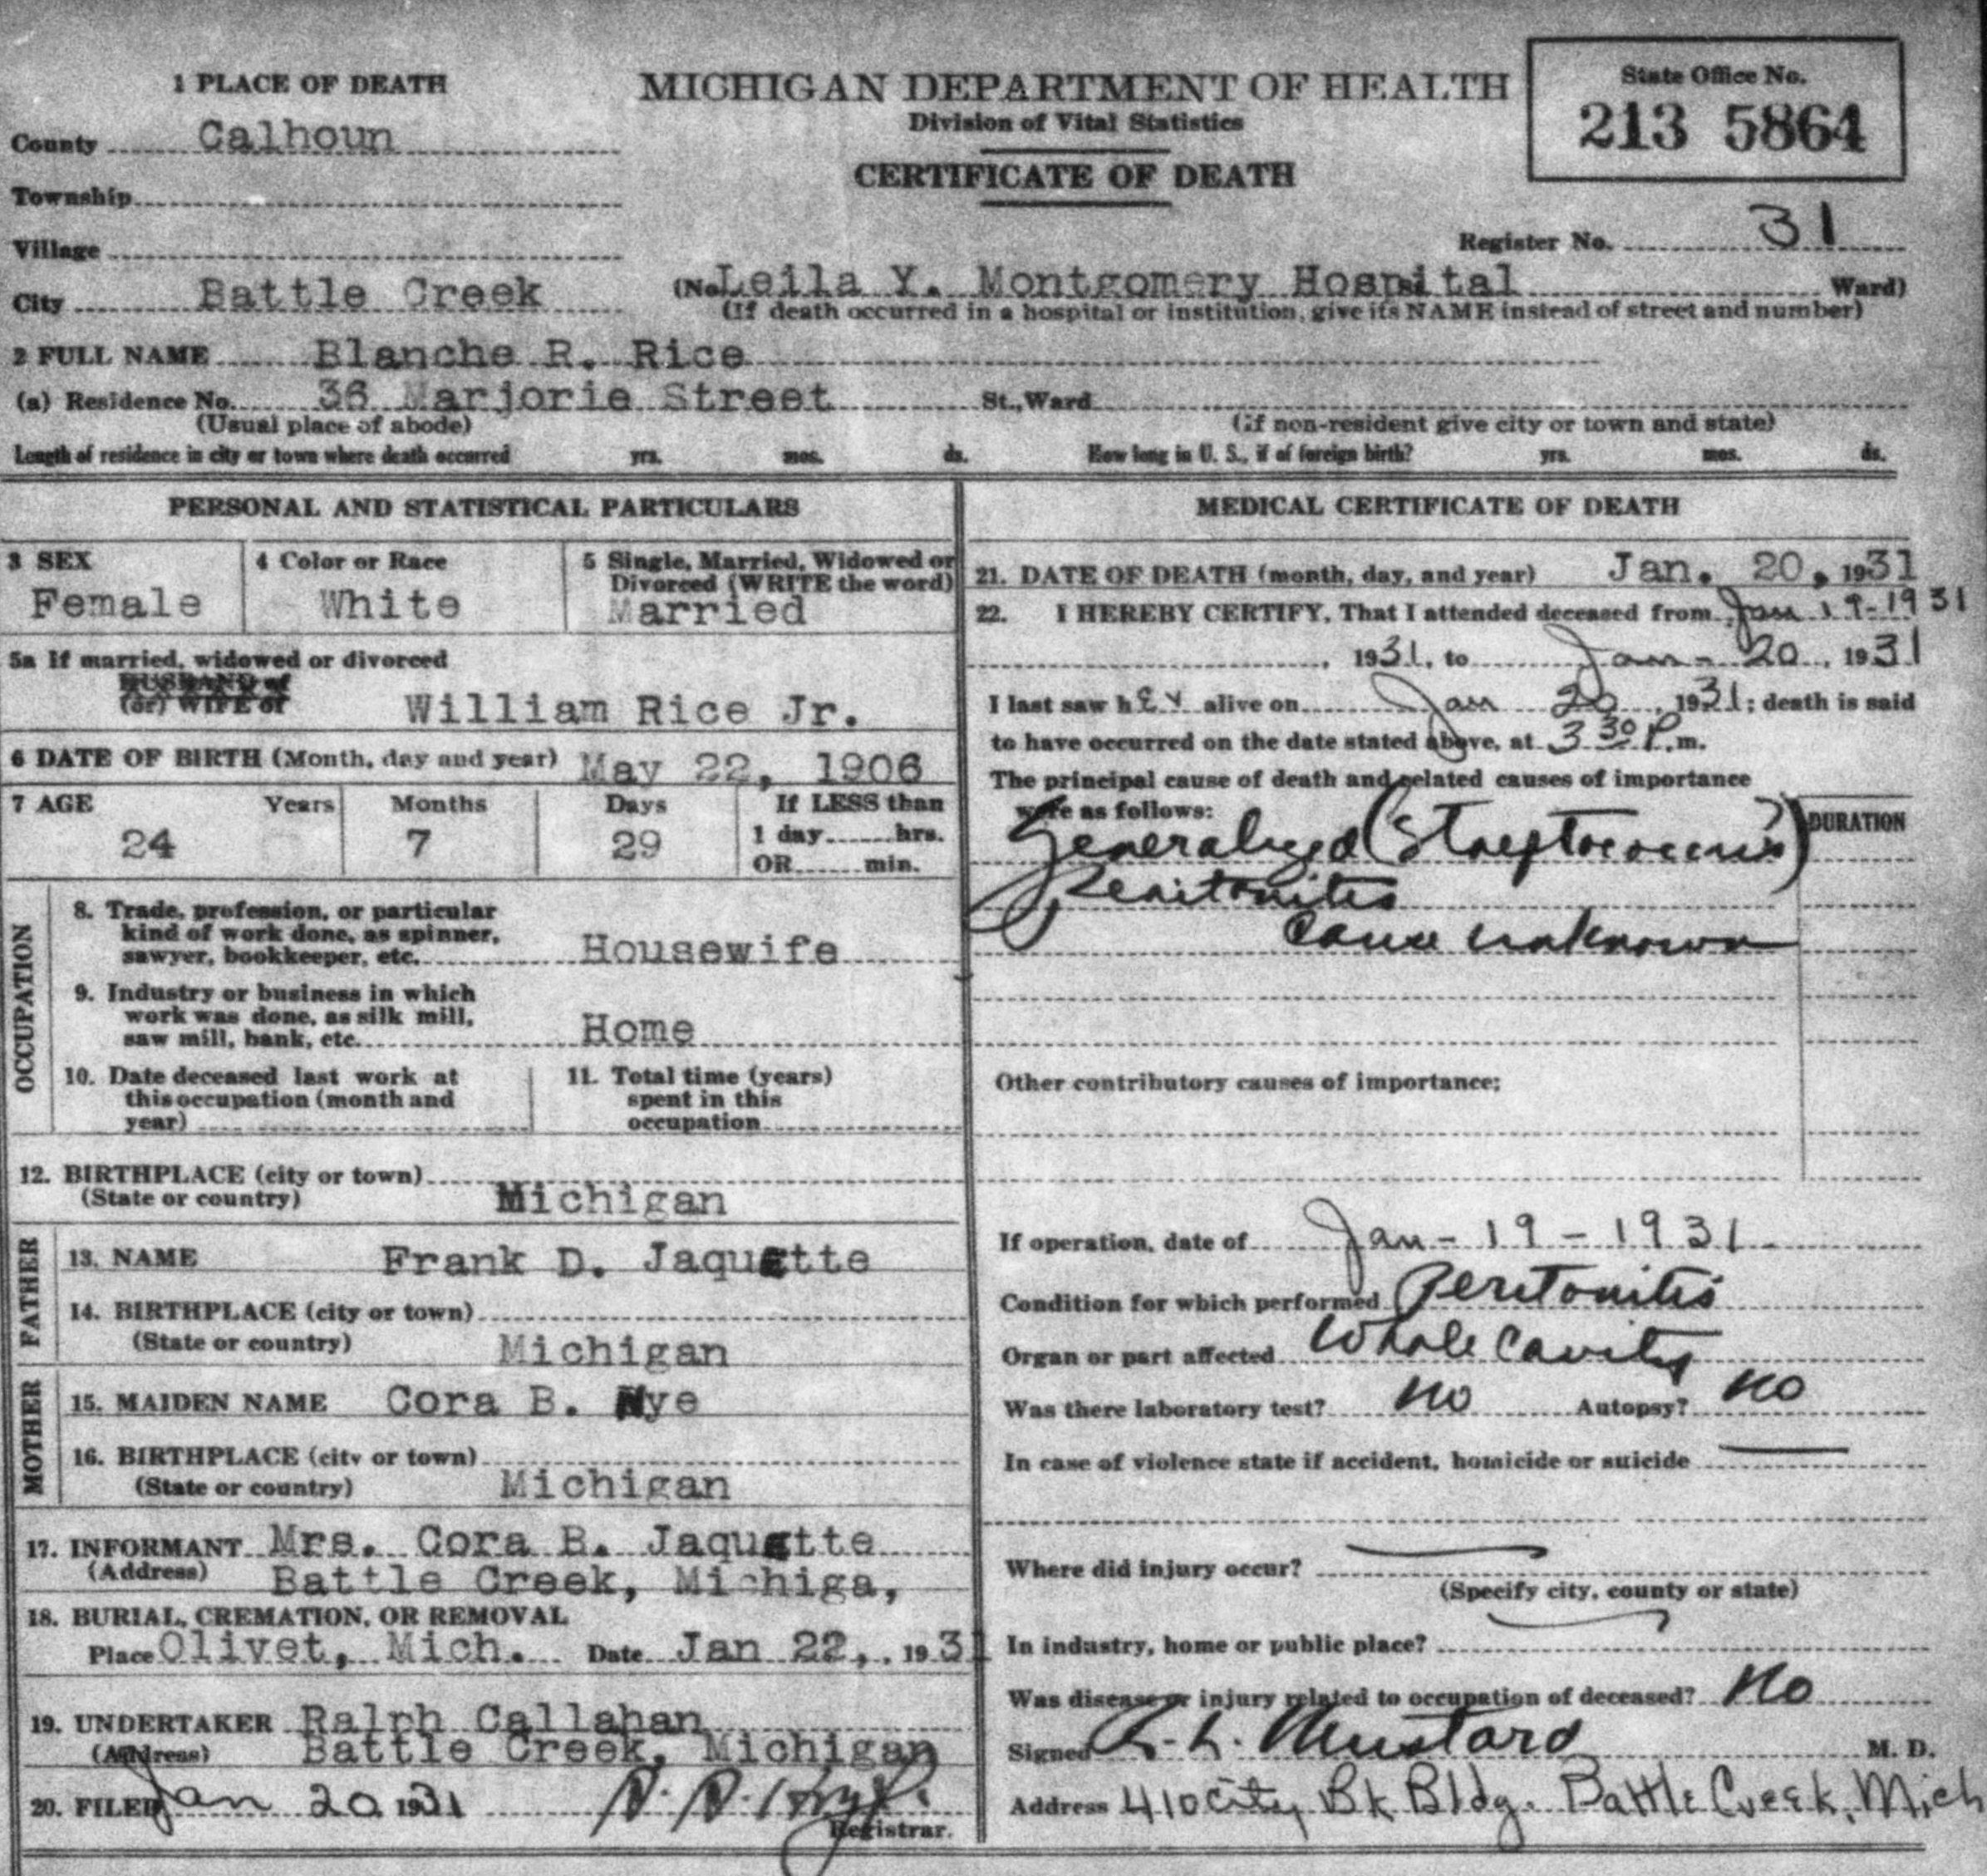 1 PLACE OF DEATH
MICHIGAN DEPARTMENT OF HEALTH
Division of Vital Statistics
CERTIFICATE OF DEATH
State Office No.
213 5864
County Calhoun
Township
Village
Register No. 31
City Battle Creek (No. Leila Y. Montgomery Hospital Ward)
(If death occurred in a hospital or institution, give its NAME instead of street and number)
2 FULL NAME Blanche R. Rice
(a) Residence No. 36 Marjorie Street St., Ward
(Usual place of abode) (If non-resident give city or town and state)
Length of residence in city or town where death occurred yrs. mos. ds. How long in U. S., if of foreign birth? yrs. mos. ds.
PERSONAL AND STATISTICAL PARTICULARS
3 SEX 4 Color or Race 5 Single, Married, Widowed or
Divorced (WRITE the word)
Female White Married
5a If married, widowed or divorced
HUSBAND of
(or) WIFE of William Rice Jr.
6 DATE OF BIRTH (Month, day and year) May 22, 1906
7 AGE Years Months Days If LESS than
24 7 29 1 day hrs.
OR min.
OCCUPATION
8. Trade, profession, or particular
kind of work done, as spinner,
sawyer, bookkeeper, etc. Housewife
9. Industry or business in which
work was done, as silk mill,
saw mill, bank, etc. Home
10. Date deceased last work at
this occupation (month and
year)
11. Total time (years)
spent in this
occupation
12. BIRTHPLACE (city or town)
(State or country) Michigan
FATHER
13. NAME Frank D. Jaquette
14. BIRTHPLACE (city or town)
(State or country) Michigan
MOTHER
15. MAIDEN NAME Cora B. Nye
16. BIRTHPLACE (city or town)
(State or country) Michigan
17. INFORMANT Mrs. Cora B. Jaquette
(Address) Battle Creek, Michiga,
18. BURIAL, CREMATION, OR REMOVAL
Place Olivet, Mich. Date Jan 22, 1931
19. UNDERTAKER Ralph Callahan
(Address) Battle Creek, Michigan
20. FILED Jan 20 1931
Registrar.
MEDICAL CERTIFICATE OF DEATH
21. DATE OF DEATH (month, day, and year) Jan. 20, 1931
22. I HEREBY CERTIFY, That I attended deceased from Jan 19-1931
, 1931, to Jan - 20, 1931
I last saw her alive on Jan 20, 1931; death is said
to have occurred on the date stated above, at 3 30 P.m.
The principal cause of death and related causes of importance
were as follows: DURATION
Generalized (Streptococcus?)
Peritonitis
Cause unknown
Other contributory causes of importance:
If operation, date of Jan - 19 - 1931
Condition for which performed Peritonitis
Organ or part affected Whole Cavity
Was there laboratory test? No Autopsy? No
In case of violence state if accident, homicide or suicide
Where did injury occur?
(Specify city, county or state)
In industry, home or public place?
Was disease or injury related to occupation of deceased? No
Signed Mustard M. D.
Address 410 City Bk Bldg. Battle Creek, Mich